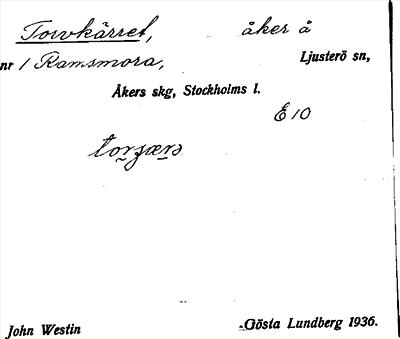 Torvkärret, åker å
nr 1 Ramsmora, Ljusterö sn,
Åkers skg, Stockholms l.
E 10
John Westin Gösta Lundberg 1936.